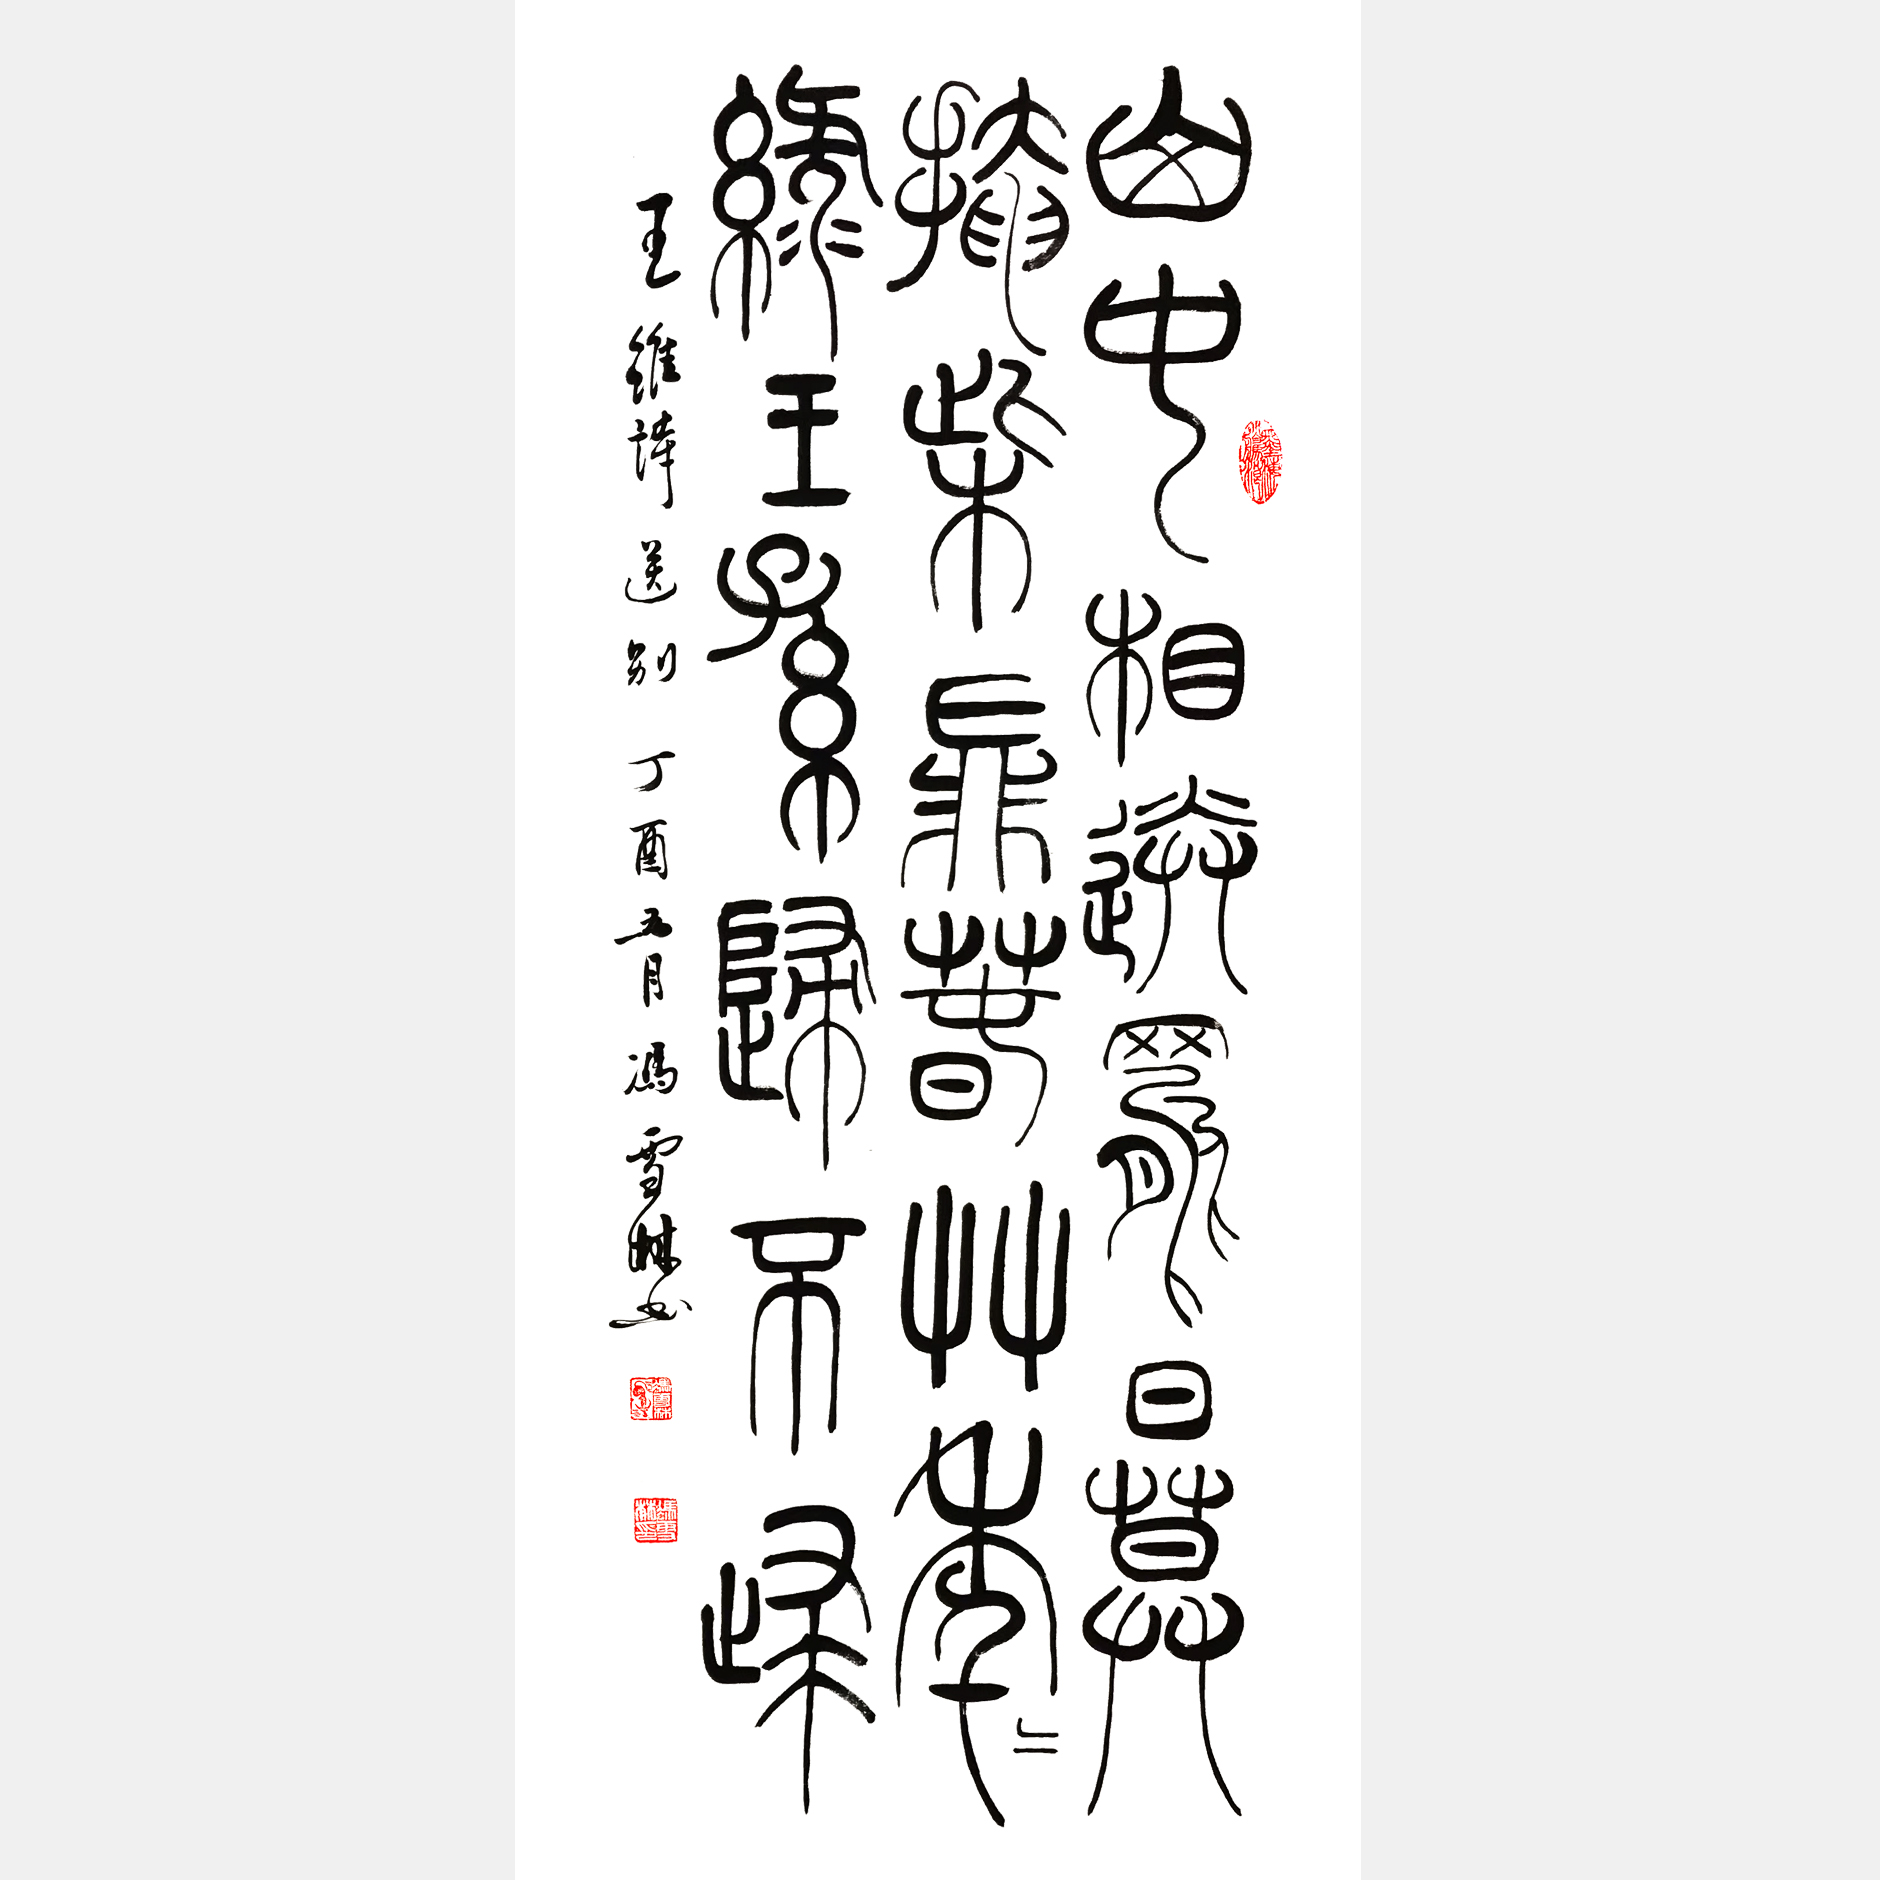 山中相送罷日暮
掩柴扉春草年〻
綠王孫歸不歸
王維詩送別 丁酉五月 馮雪林书